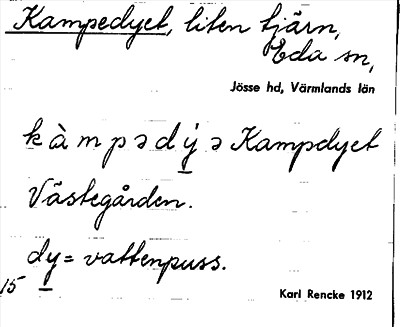 Kampedyet, liten tjärn,
Eda sn,
Jösse hd, Värmlands län
kàmpədýə Kampdyet
Västegården.
dy = vattenpuss.
15
Karl Rencke 1912